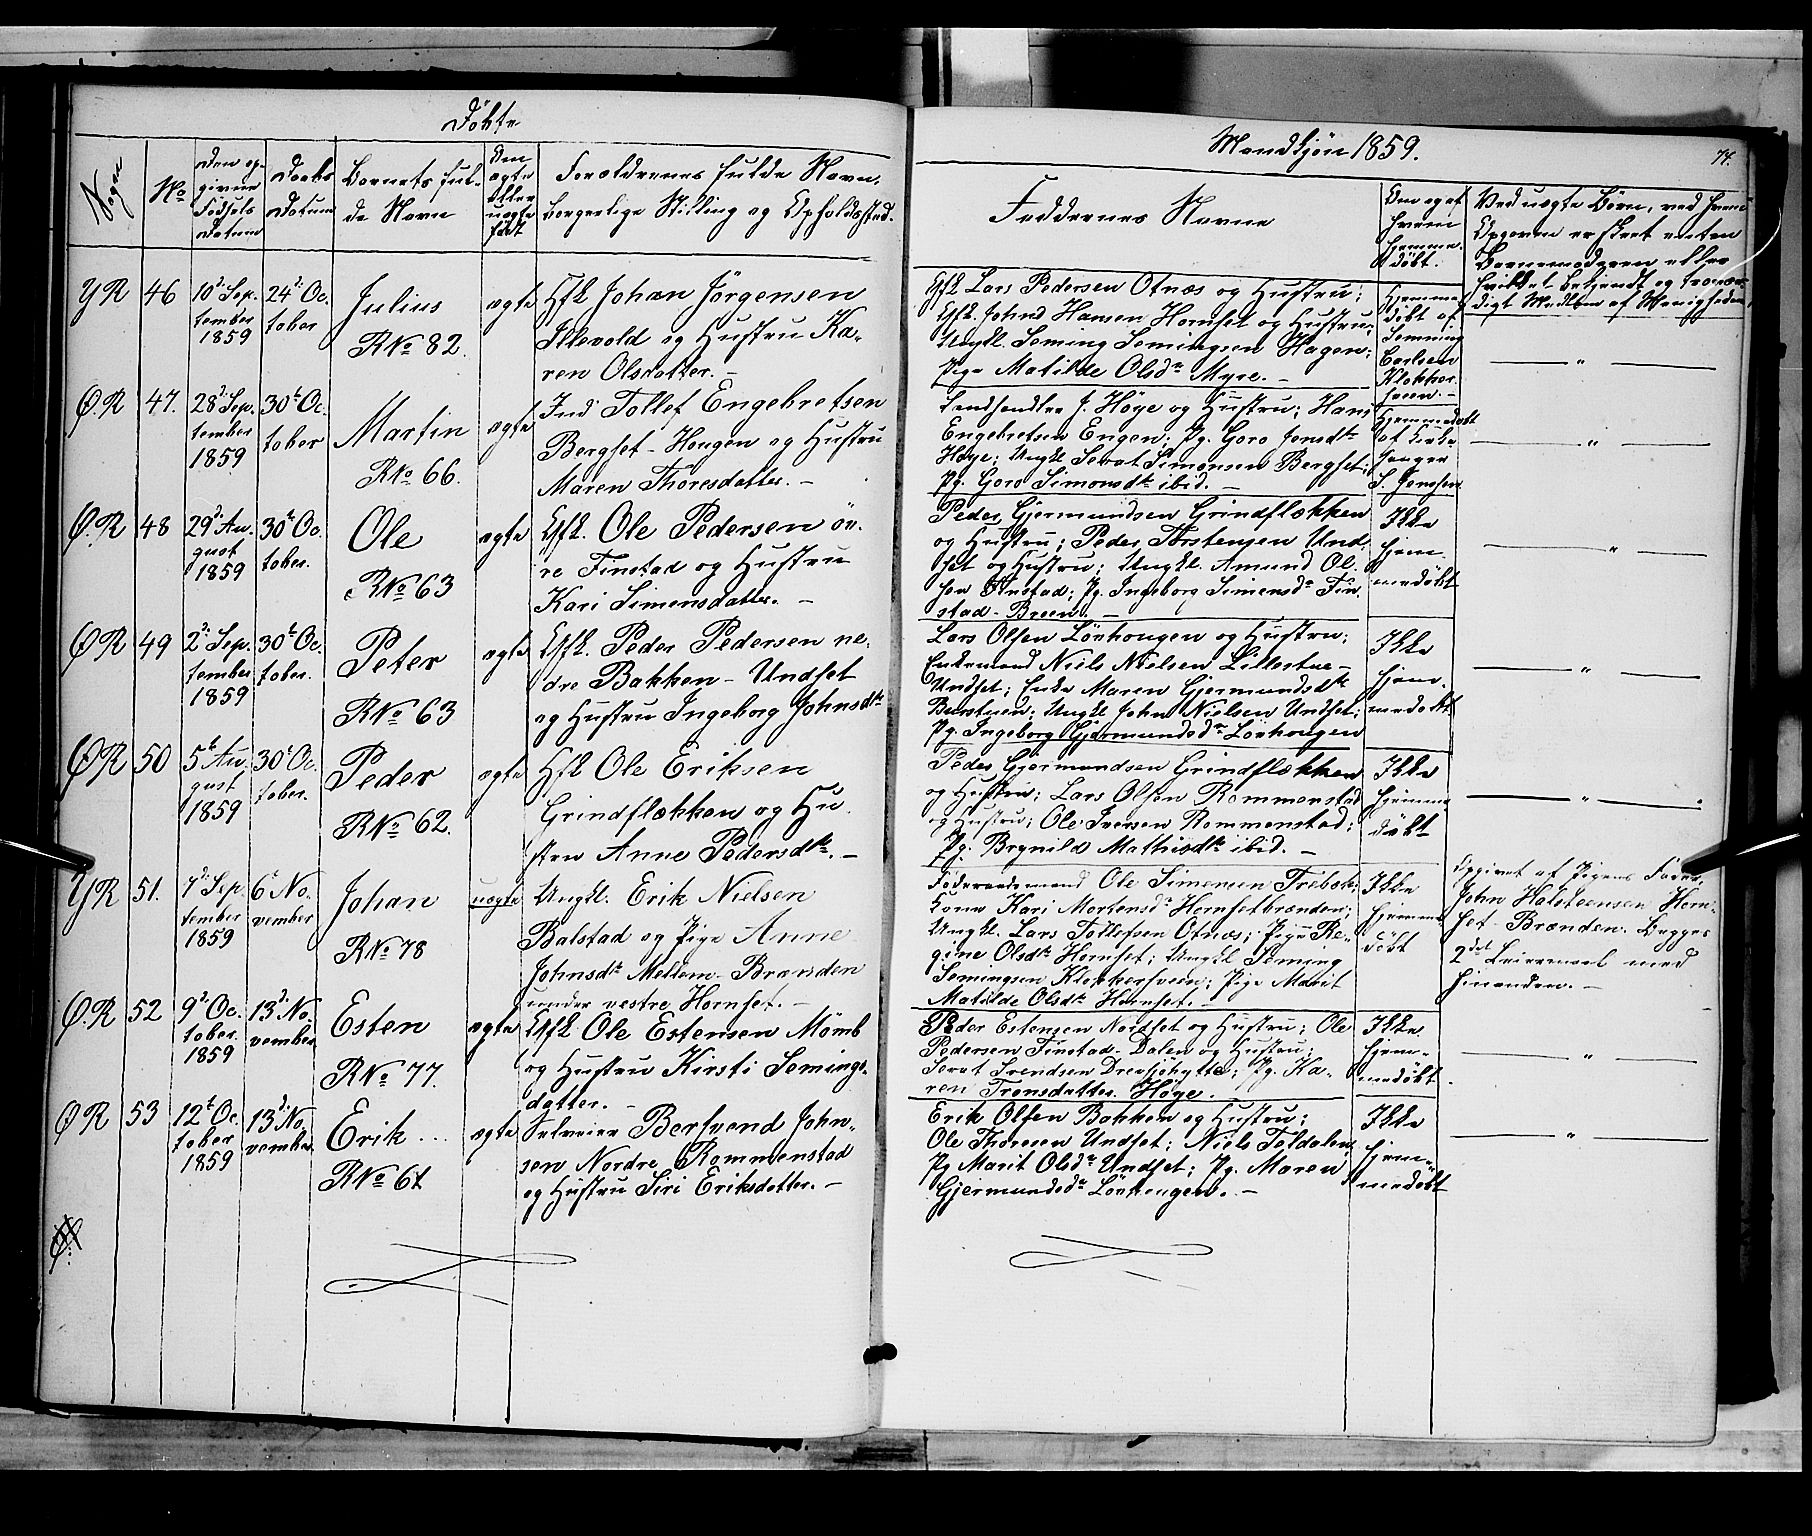 Døbte
Sogne
No
Den op-
givne
Fødsels
Datum
Daabs
Datum
Barnets ful-
de Navn
Om
ægte
eller
uægte
født
Forældrenes fulde Navn,
borgerlige Stilling og Opholdssted.
YR 46 10d Sep-
tember
1859
24d Oc.
tober
Julius
RNo 82.
ægte
Gfk Johan Jörgensen
Illevold og Hustru Ka-
ren Olsdatter. -
Ø.R 47. 28d Sep.
tember
1859
30t Oc.
tober
Martin
RNo 66.
ægte
Ind Tollef Engebretsen
Bergset-Hougen og Hustru
Maren Thoresdatter. -
Ø.R 48 29d Au-
gust
1859
30t Oc.
tober.
Ole
RNo 63
ægte
Gfk. Ole Pedersen öv-
re Finstad og Hustru
Kari Simensdatter. -
ØR 49 2d Sep.
tember
1859
30t Oc.
tober.
Peter
RNo 63
ægte
Gfk. Peder Pedersen ne-
dre Bakken-Undset
og Hustru Ingeborg Johnsdtr
ØR 50 5t Au-
gust
1859
30t Oc.
tober.
Peder
RNo 62.
ægte
Hfk Ole Eriksen
Grindflækken og Hu-
stru Anne Pedersdtr. -
YR 51. 7d Sep.
tember
1859
6t No-
vember
Johan
RNo 78
uægte
Ungkl. Erik Nielsen
Balstad og Pige Anne
Johnsdtr Mellem-Brænden
under vestre Hornset. -
Ø.R 52 9d Oc.
tober.
1859
13d No-
vember
Esten
RNo 77.
ægte
Gfk Ole Estensen Mömb
og Hustru Kirsti Semings-
datter. -
ØR 53 12t Oc.
tober
1859
13d No-
vember.
Erik
RNo 61
ægte
Selveier Bersvend John-
sen Nordre Rommenstad
og Hustru Siri Eriksdatter. -
Mandkjön 1859.
74.
Faddernes Navne
Om og af
hvem
hjemme-
døbt.
Ved uægte Börn, ved hvem
Opgaven er skeet enten
Barnemoderen eller
hvilket bekjendt og trovær-
digt Medlem af Menigheden.
Gfk Lars Pedersen Otnæs og Hustru;
Gfk. John Hansen Hornset og Hustru;
Ungkl. Seming Semingsen Hagen;
Pige Matilde Olsdr Myre. -
Hjemme-
døbt af
Semming
Carlsen
Klokker-
sveen. -
Landhandler J. Höye og Hustru; Hans
Engebretsen Engen; Pg. Goro Jonsdtr
Höye; Ungkl Sivat Simonsen Bergset;
Pg. Goro Simonsdtr ibid. -
Hjemmedøbt
af Kirke-
sanger
S. Jonsen
Peder Gjermundsen Grindflækken
og Hustru; Peder Torstensen Und-
set og Hustru; Ungkl. Amund Ol-
sen Finstad; Pg. Ingeborg Simensdr Fin-
stad-Breen. -
Ikke
hjem-
medøbt
Lars Olsen Lönhougen og Hustru;
Enkemand Niels Nielsen Lillestue-
Undset; Enke Maren Gjermundsdtr
Burstuen; Ungkl John Nielsen Undset;
Pg. Ingeborg Gjermundsdr Lönhougen
Ikke
hjem-
medøbt
Peder Gjermundsen Grindflækken
og Hustru; Lars Olsen Rommenstad
og Hustru; Ole Iversen Rommenstad;
Pg. Brynild Mathisdtr ibid. -
Ikke
hjemme
døbt
Föderaadsmand Ole Simensen Trebæk;
Kone Kari Mortensdr Hornsetbrænden;
Ungkl. Lars Tollefsen Otnæs; Pige Re-
gine Olsdtr Hornset; Ungkl Seming
Semingsen Klokkersveen; Pige Marit
Matilde Olsdtr Hornset. -
Ikke
hjemme
døbt
Opgivet af Pigens Fader,
John Halsteensen Horn-
set-Brænden. Begges
2det Leiermaal med
hinanden. -
Peder Estensen Nordset og Hustru; Ole
Pedersen Finstad-Dalen og Hustru;
Sivat Svendsen Drevsjöhytte; Pg. Ka-
ren Tronsdatter Höye. -
Ikke
hjem-
medøbt.
Erik Olsen Bakken og Hustru;
Ole Thoresen Undset; Niels Foldalen;
Pg Marit Olsdr Undset; Pg. Maren
Gjermundsdr Lönhougen. -
Ikke
hjem-
medøbt